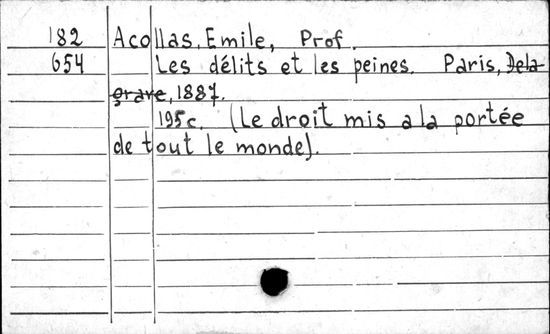 182 Acollas, Emile, Prof.
654 Les délits et les peines. Paris, Dela-
grave, 1887.
195c. (Le droit mis a la portée
de tout le monde).